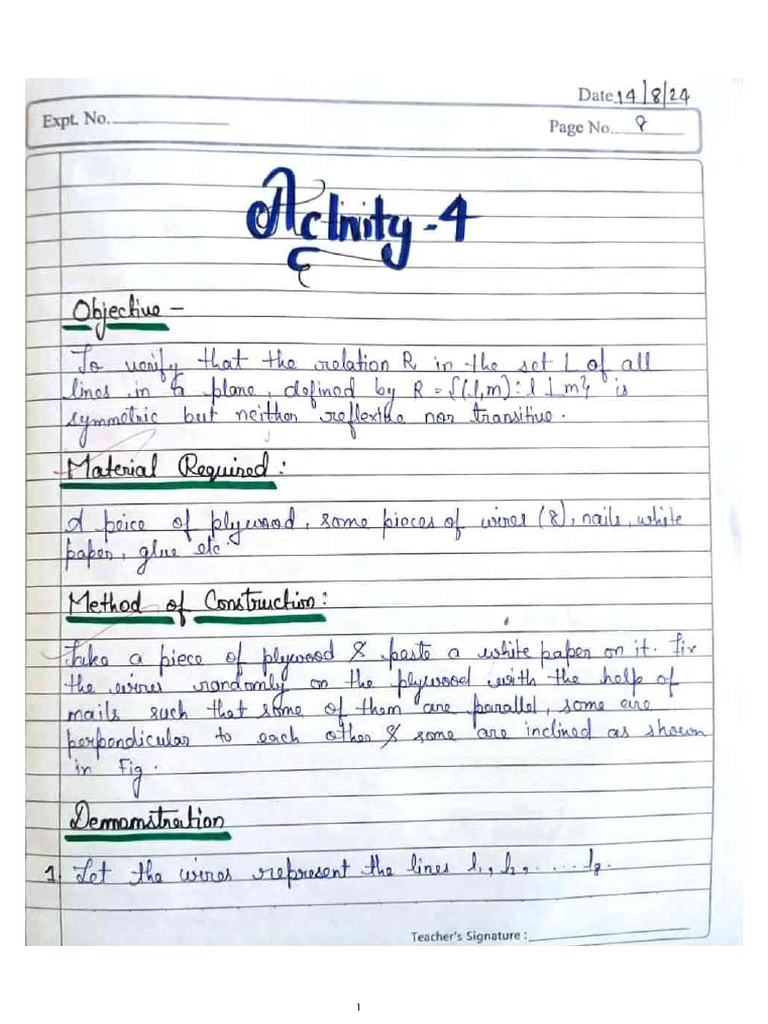 Date 14/8/24
Expt. No.
Page No. 8
Activity-4
Objective -
To verify that the relation R in the set L of all
lines in a plane, defined by R = {(l,m) : l ⊥ m} is
symmetric but neither reflexive nor transitive.
Material Required :
A peice of plywood, some pieces of wires (8), nails, white
paper, glue etc.
Method of Construction :
Take a piece of plywood & paste a white paper on it. Fix
the wires randomly on the plywood with the help of
nails such that some of them are parallel, some are
perpendicular to each other & some are inclined as shown
in Fig.
Demonstration
1. Let the wires represent the lines l₁, l₂, ..... l₈.
Teacher's Signature :
1